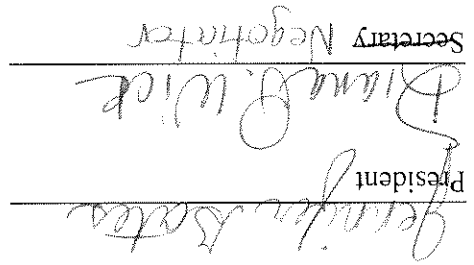 Jennifer Bates
President
Diana O. Wick
Secretary Negotiator